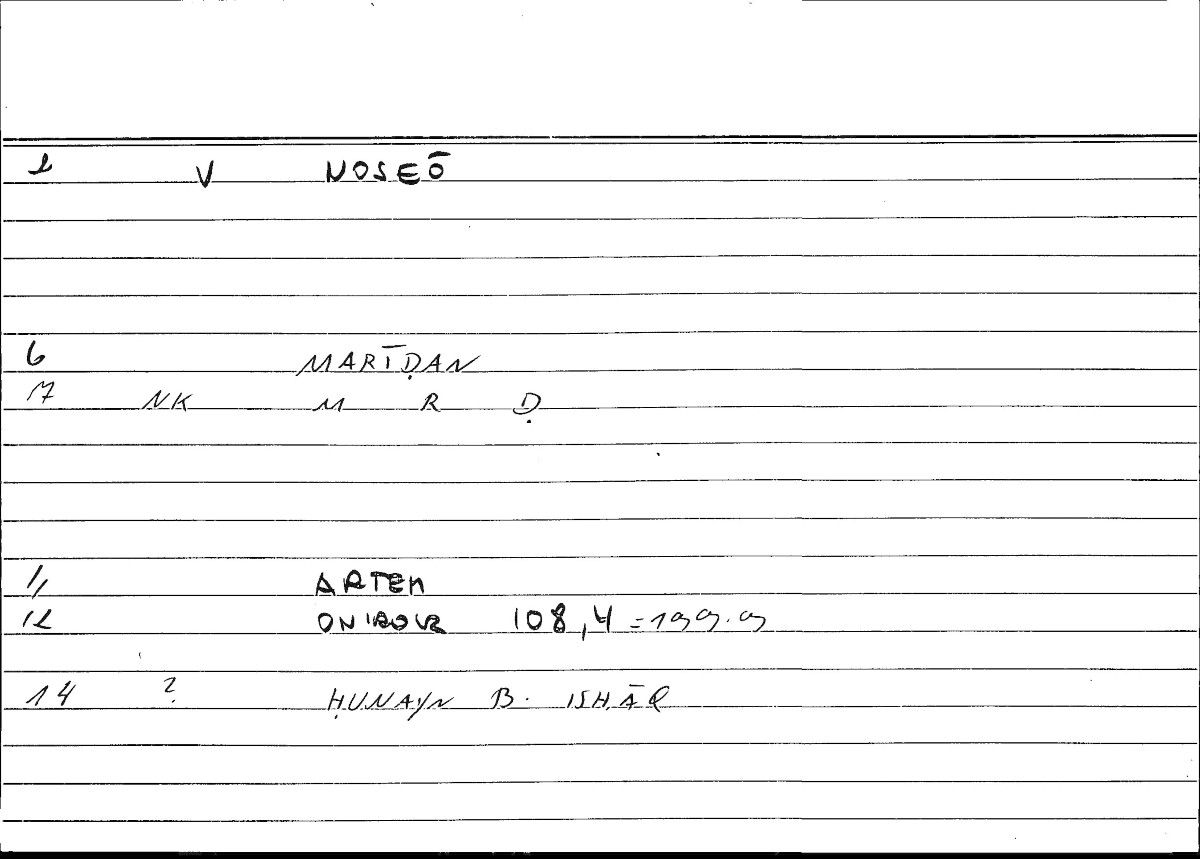 1 V NOSEŌ
6 MARĪḌAN
7 NK M R Ḍ
11 ARTEM
12 ONIROCR 108,4 = 199.9
14 ? ḤUNAYN B. ISḤĀQ